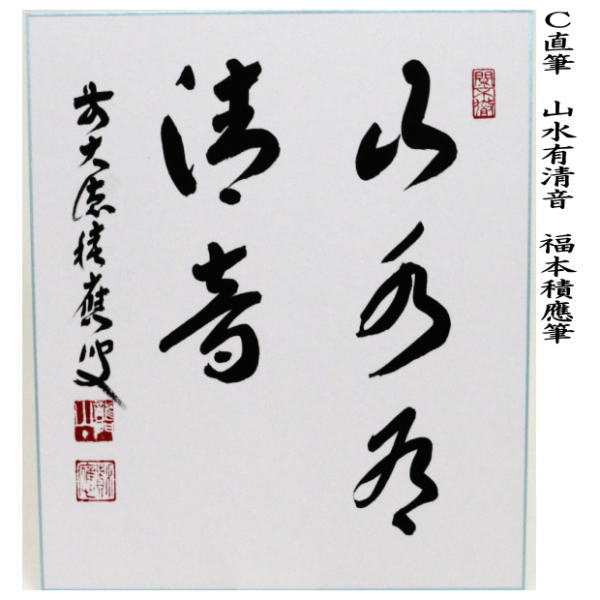 C直筆 山水有清音 福本積應筆
山水有
清音
前大徳積應叟